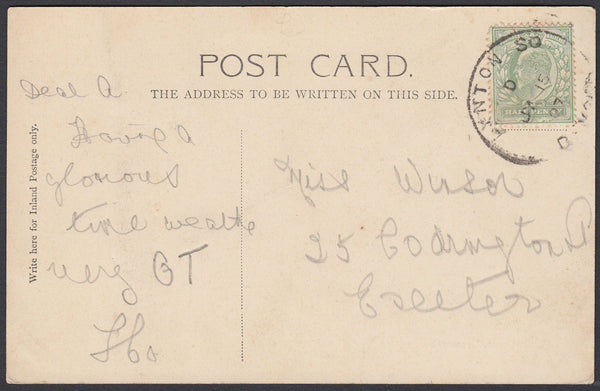 POST CARD.
THE ADDRESS TO BE WRITTEN ON THIS SIDE.
Write here for Inland Postage only.
Dear A
Having a
glorious
time weathe
very
Miss Winsor
25 Codrington
Exeter
ANTON SO
D
15
07
HALFPENNY